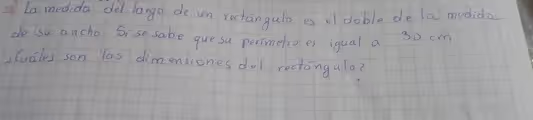 La medida del largo de un rectángulo es el doble de la medida
de su ancho Si se sabe que su perimetro es igual a 30 cm
¿Cuáles son las dimensiones del rectángulo?